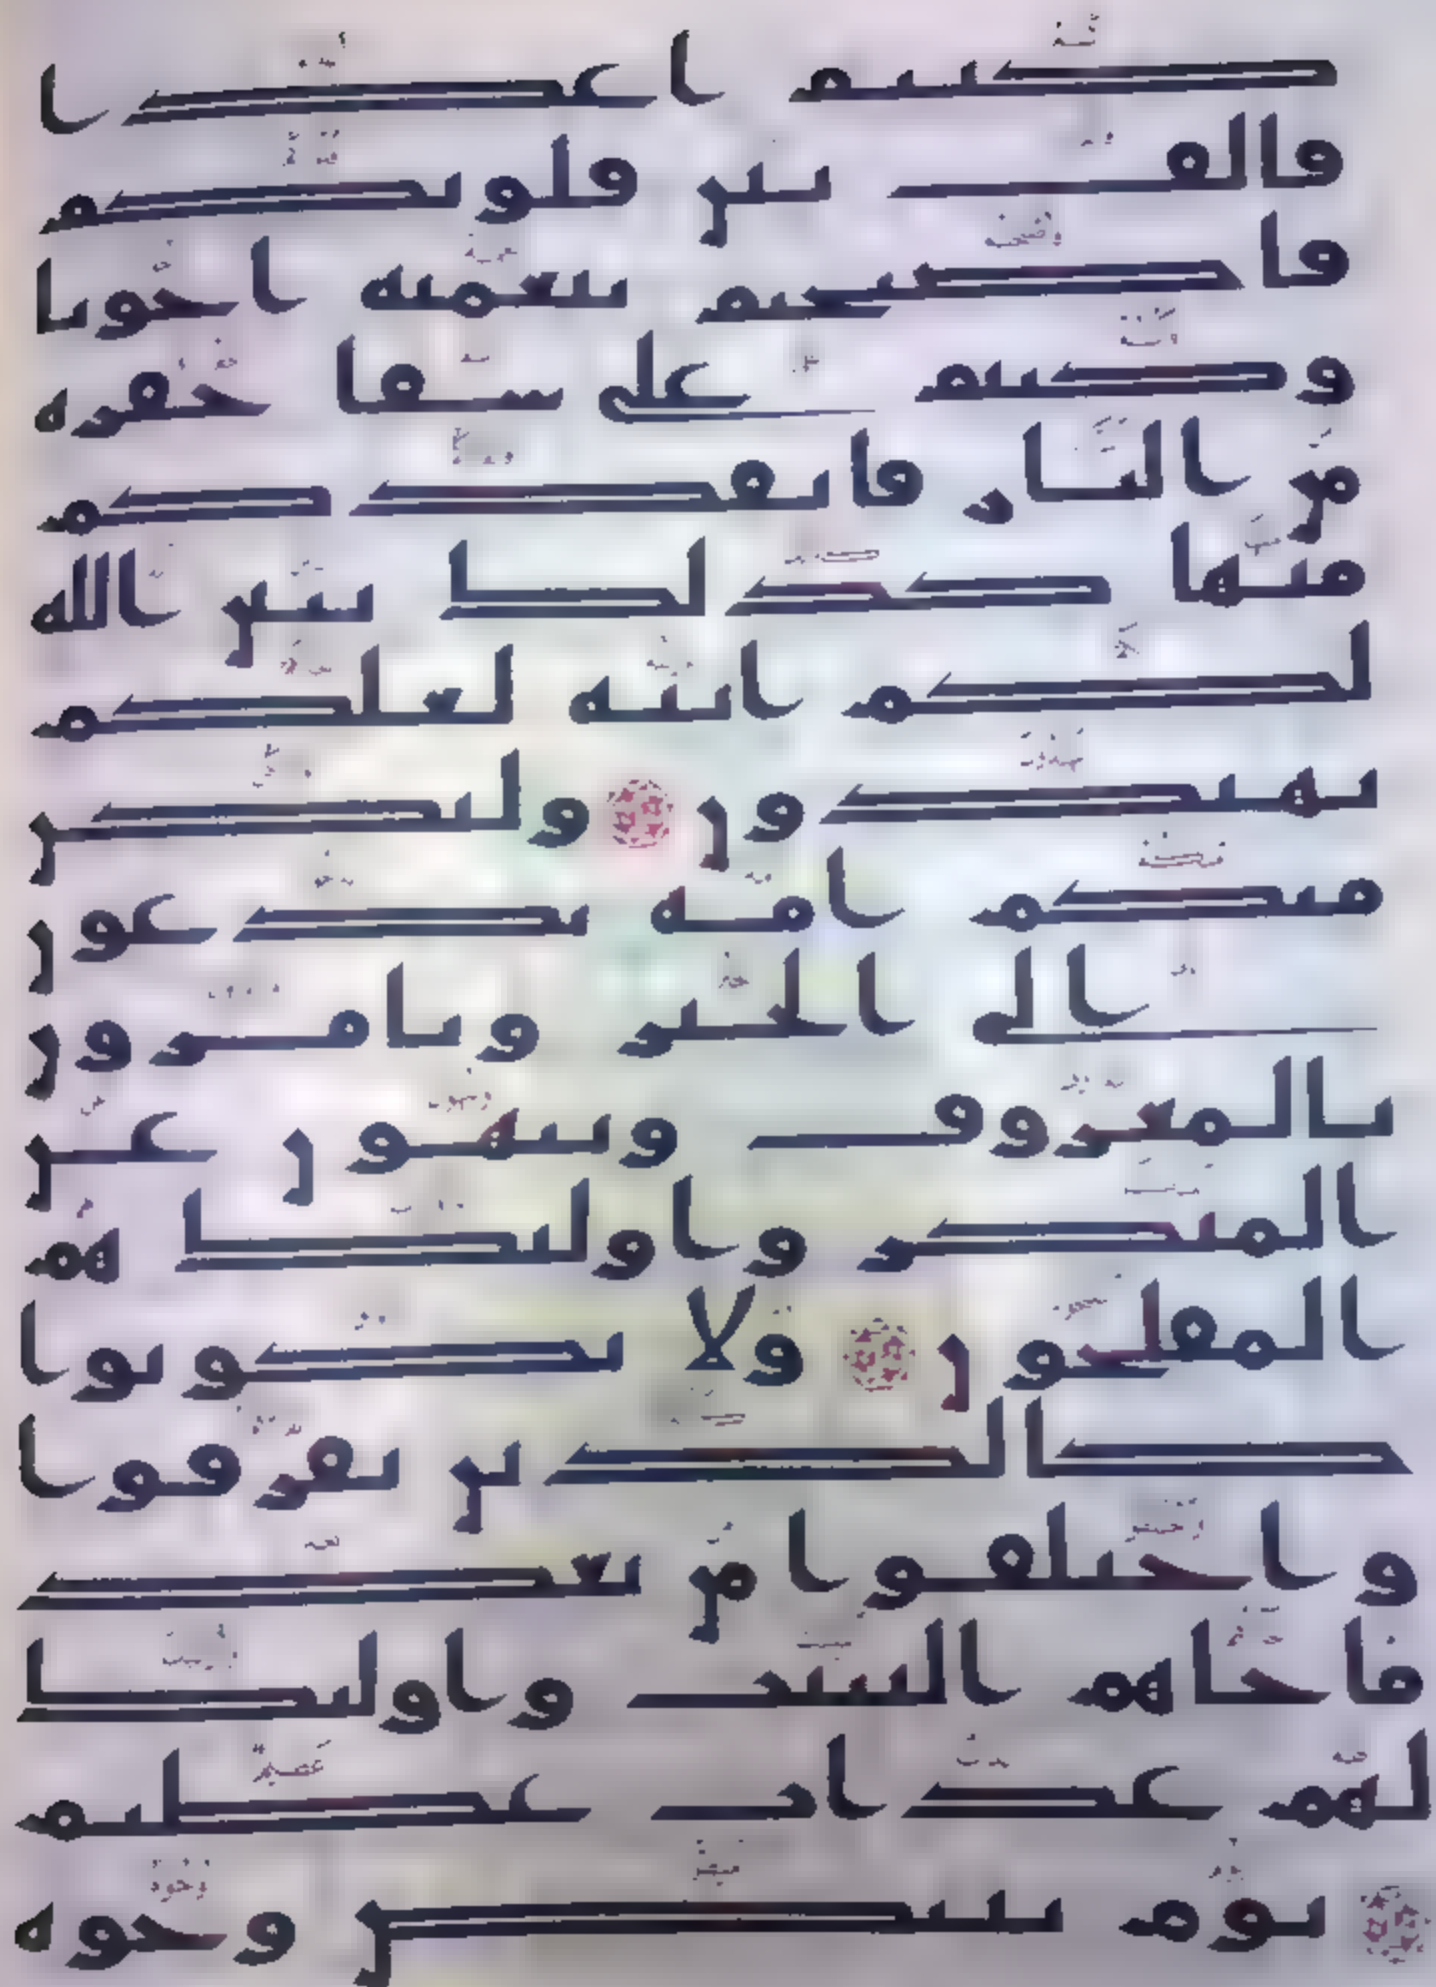 كنتم اعدا
فالف بين قلوبكم
فاصبحتم بنعمته اخونا
وكنتم على شفا حفره
من النار فانقذكم
منها كذلك يبين الله
لكم ايته لعلكم
تهتدون ولتكن
منكم امه يدعون
الى الخير ويامرون
بالمعروف وينهون عن
المنكر واولئك هم
المفلحون ولا تكونوا
كالذين تفرقوا
واختلفوا من بعد
ما جاهم البينت واولئك
لهم عذاب عظيم
يوم تبيض وجوه